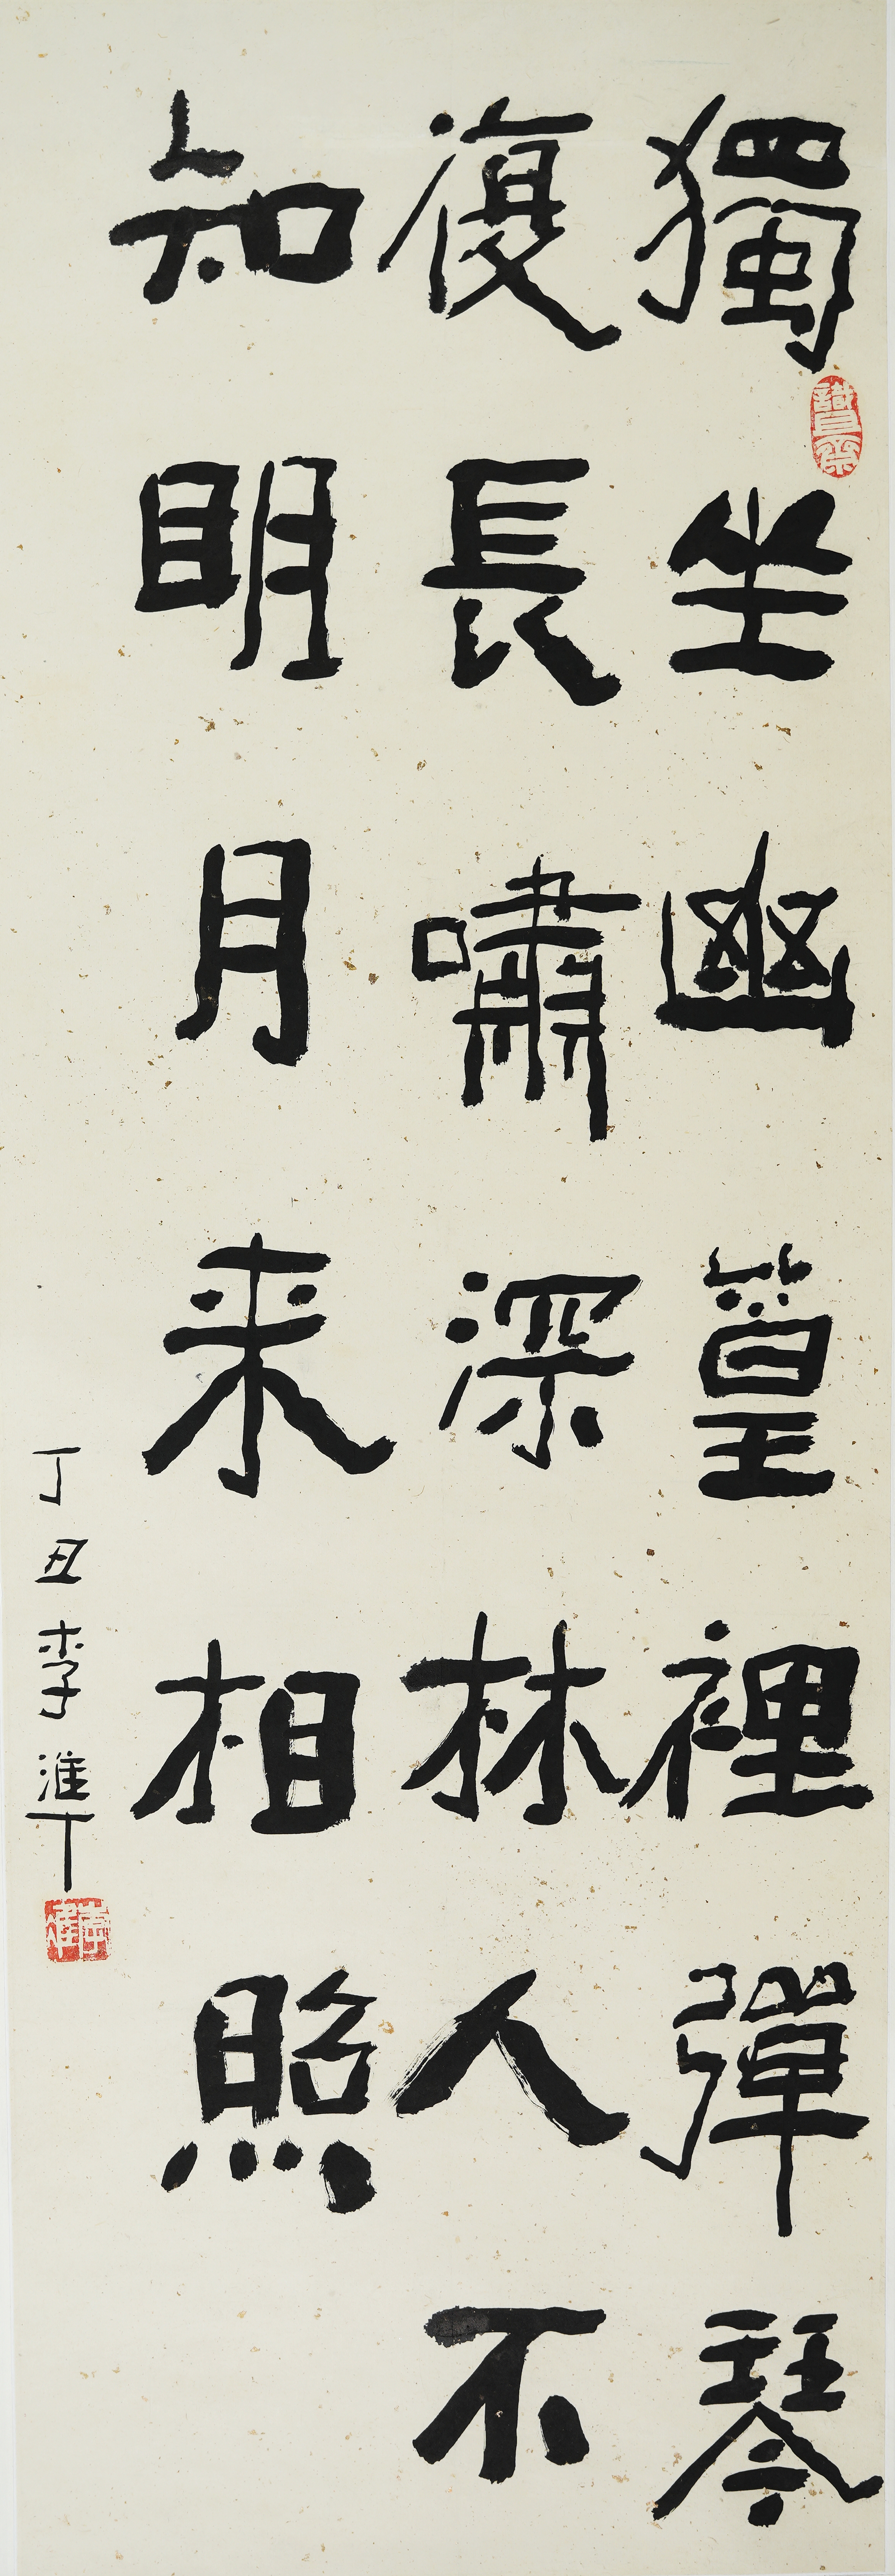 獨坐幽篁裡彈琴
復長嘯深林人不
知明月来相照
丁丑李準